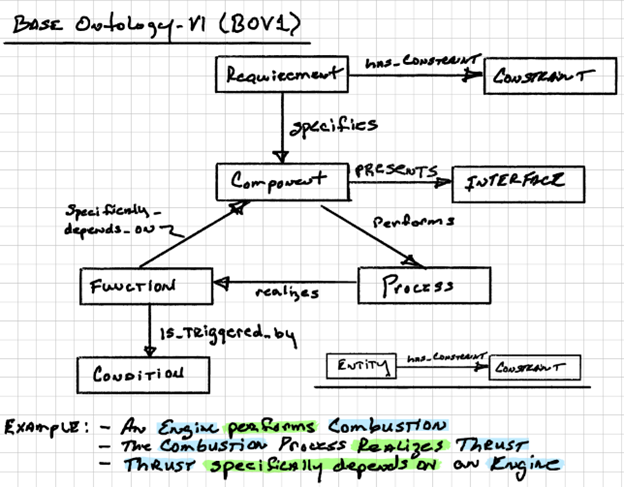 BASE Ontology-V1 (BOV1)
Requirement
has_Constraint
Constraint
specifies
Component
PRESENTS
INTERFACE
Specifically_
depends_on
Performs
Function
realizes
Process
Is_Triggered_by
Condition
Entity
has_Constraint
Constraint
EXAMPLE: - An Engine performs Combustion
- The Combustion Process Realizes Thrust
- Thrust specifically depends on an Engine